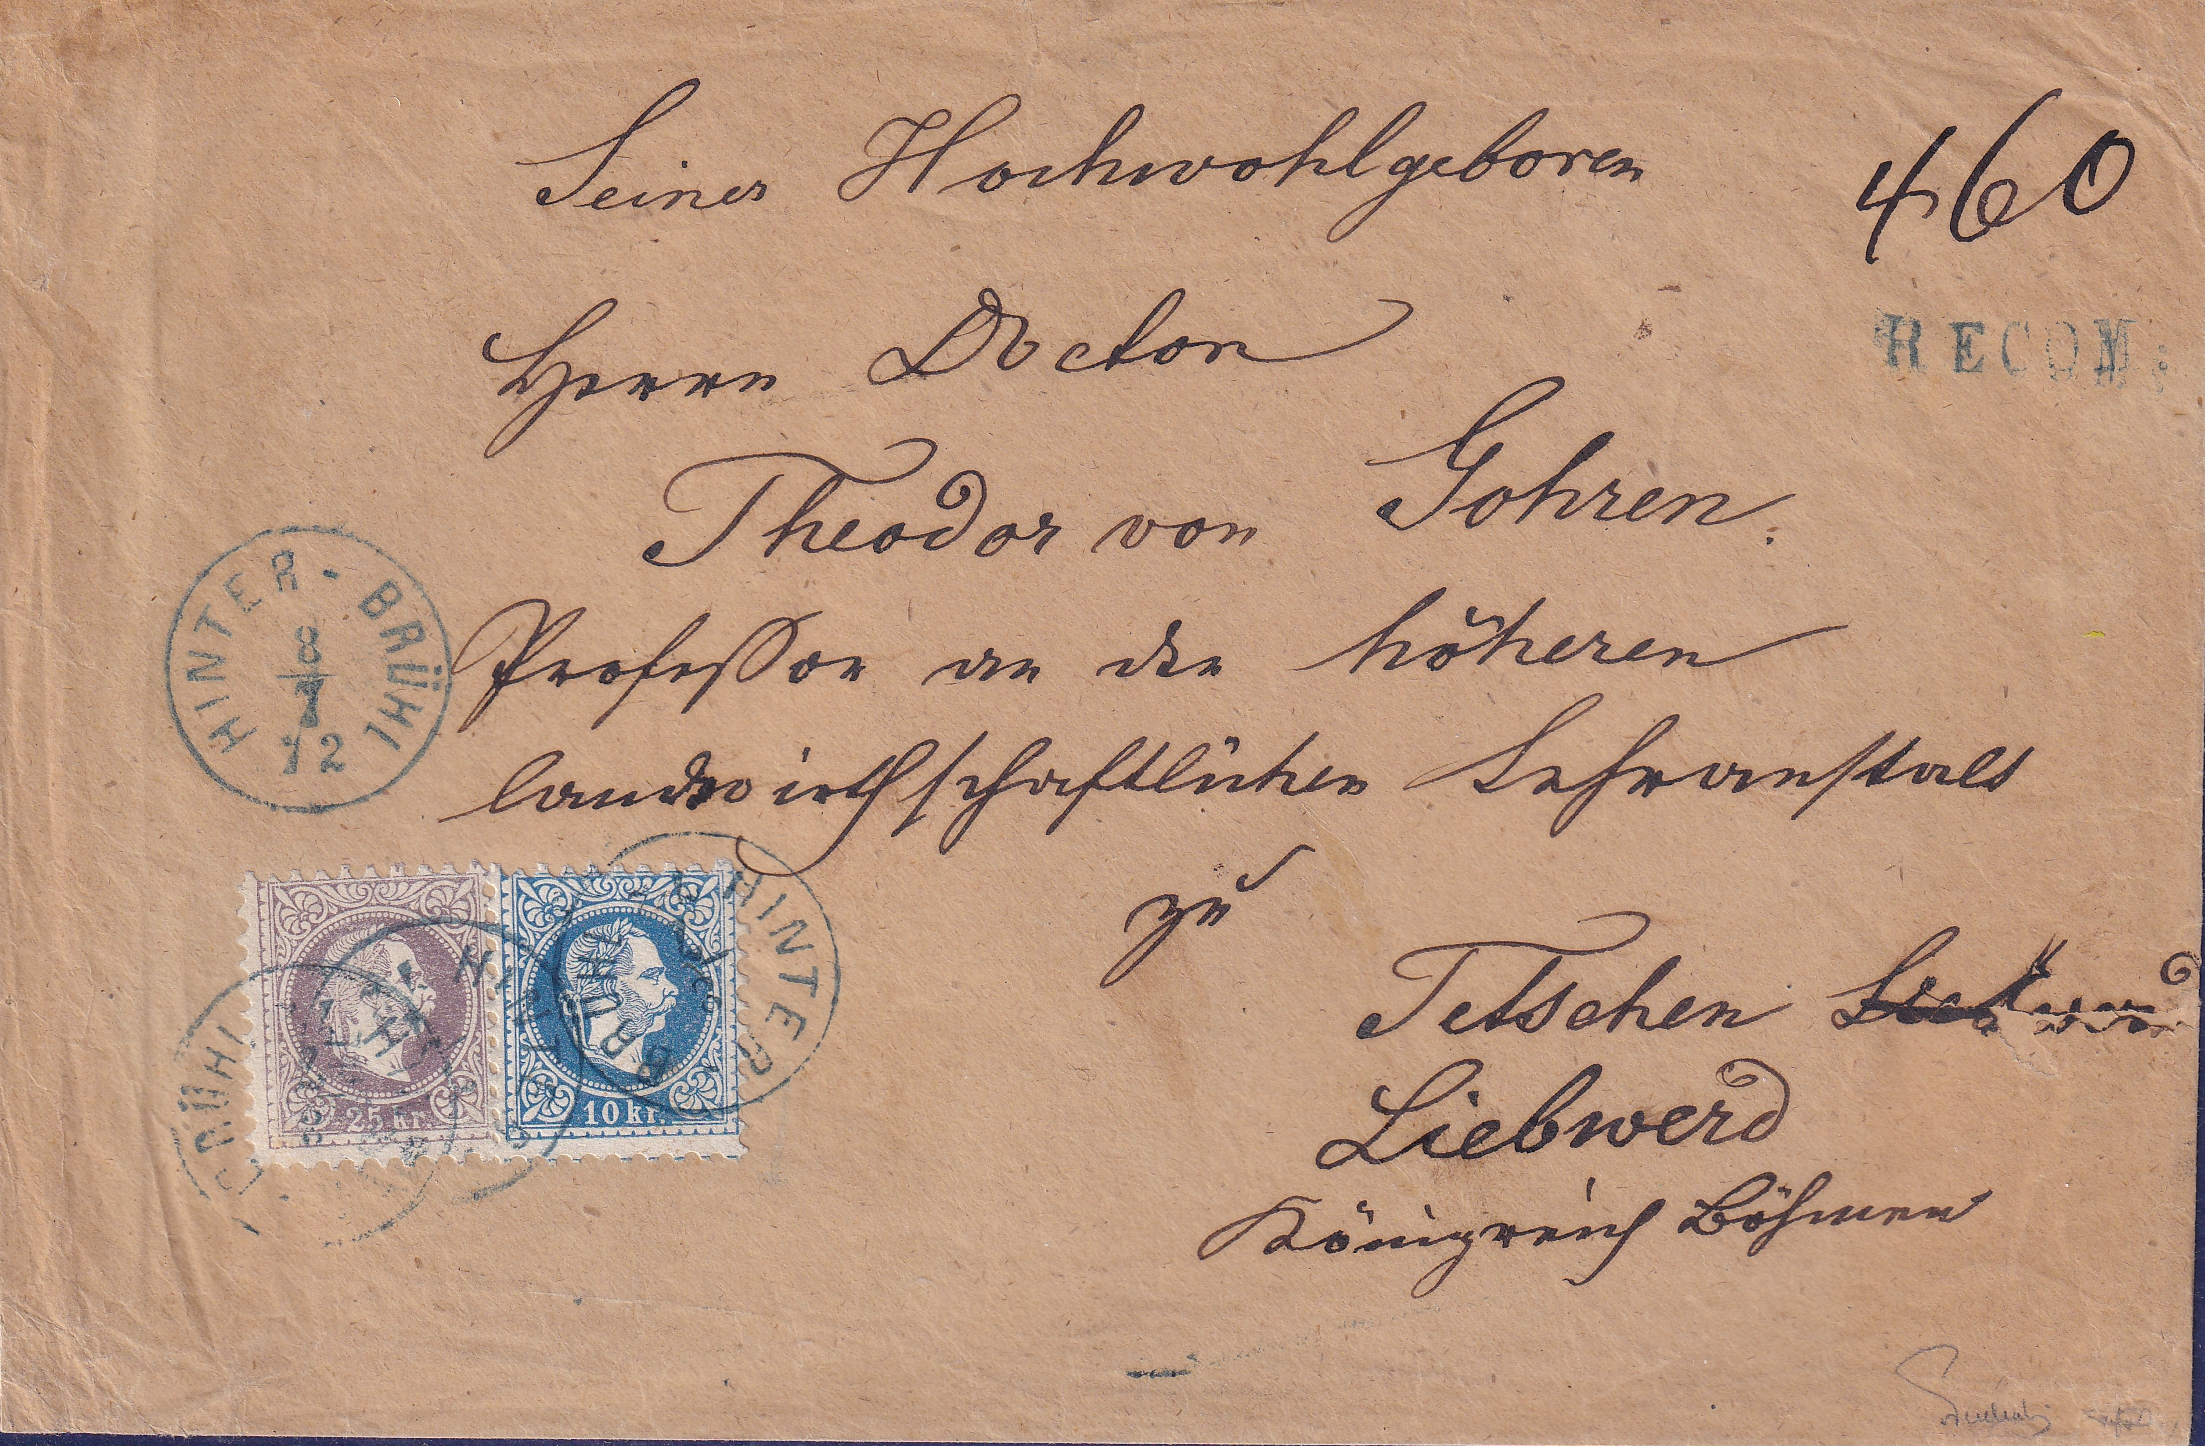 Seiner Hochwohlgeboren
460
RECOM:
Herrn Doctor
Theodor von Gohren.
Professor an der höheren
landwirthschaftlichen Lehranstalt
zu
Tetschen
Liebwerd
Königreich Böhmen
HINTER-BRÜHL
8
7
72
25 kr.
10 kr.
HINTER
BRÜHL